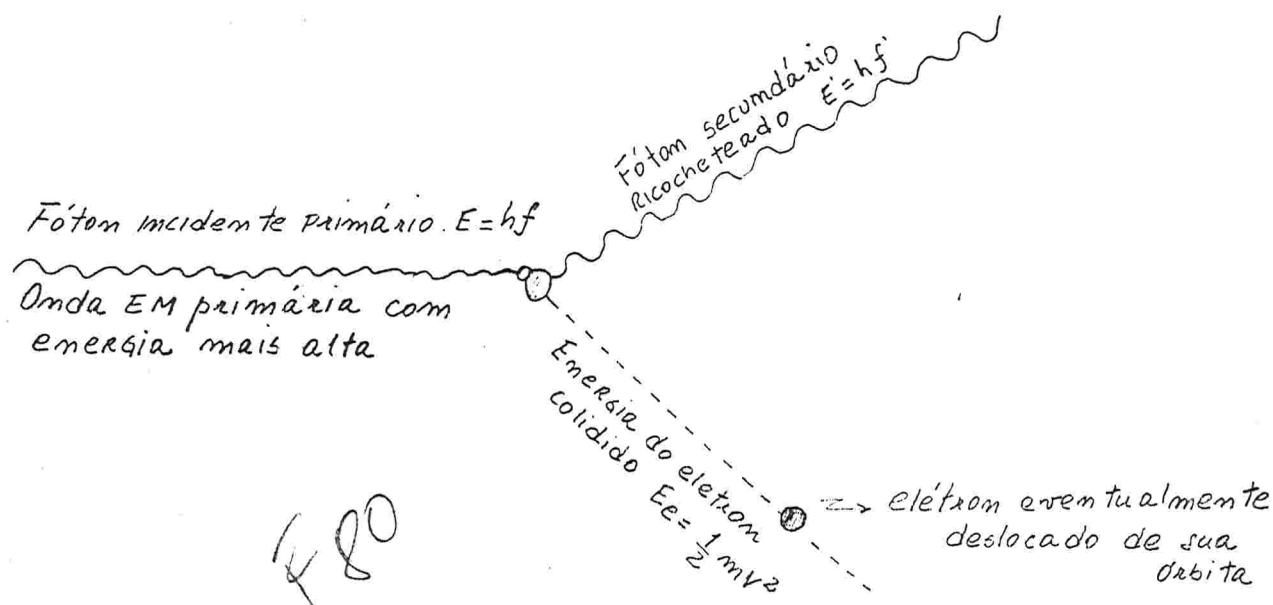 Fóton secundário
Ricocheteado E'=hf'
Fóton incidente primário. E=hf
Onda EM primária com
energia mais alta
Energia do eletron
colidido Ee= 1/2 mv²
=> elétron eventualmente
deslocado de sua
órbita
F80